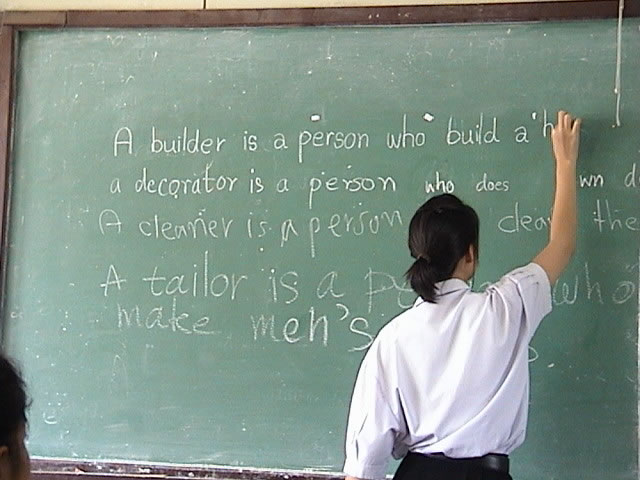 A builder is a person who build a h
a decorator is a person who does
A cleaner is a person clean the
A tailor is a who
make men's